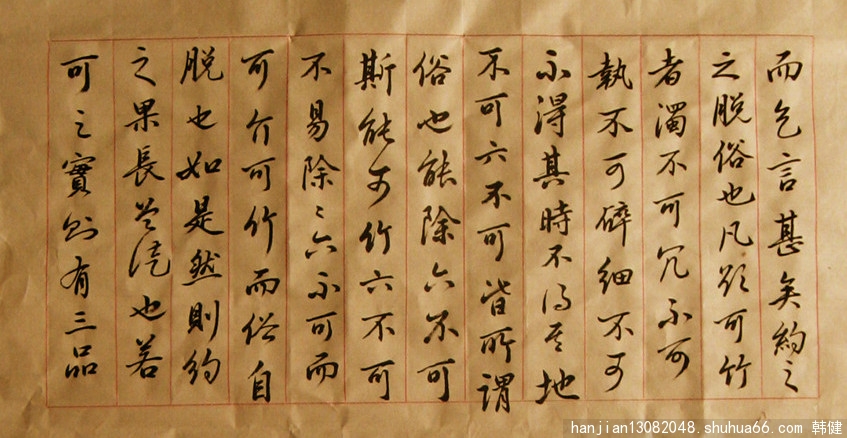 而乞言甚矣約之
之脱俗也凡欲可竹
者濁不可冗不可
執不可碎細不可
不得其時不得其地
不可六不可皆所謂
俗也能除六不可
斯能可竹六不可
不易除〻六不可而
可介可竹而俗自
脱也如是然則約
之果長也若
可之實則有三品
hanjian13082048.shuhua66.com 韩健